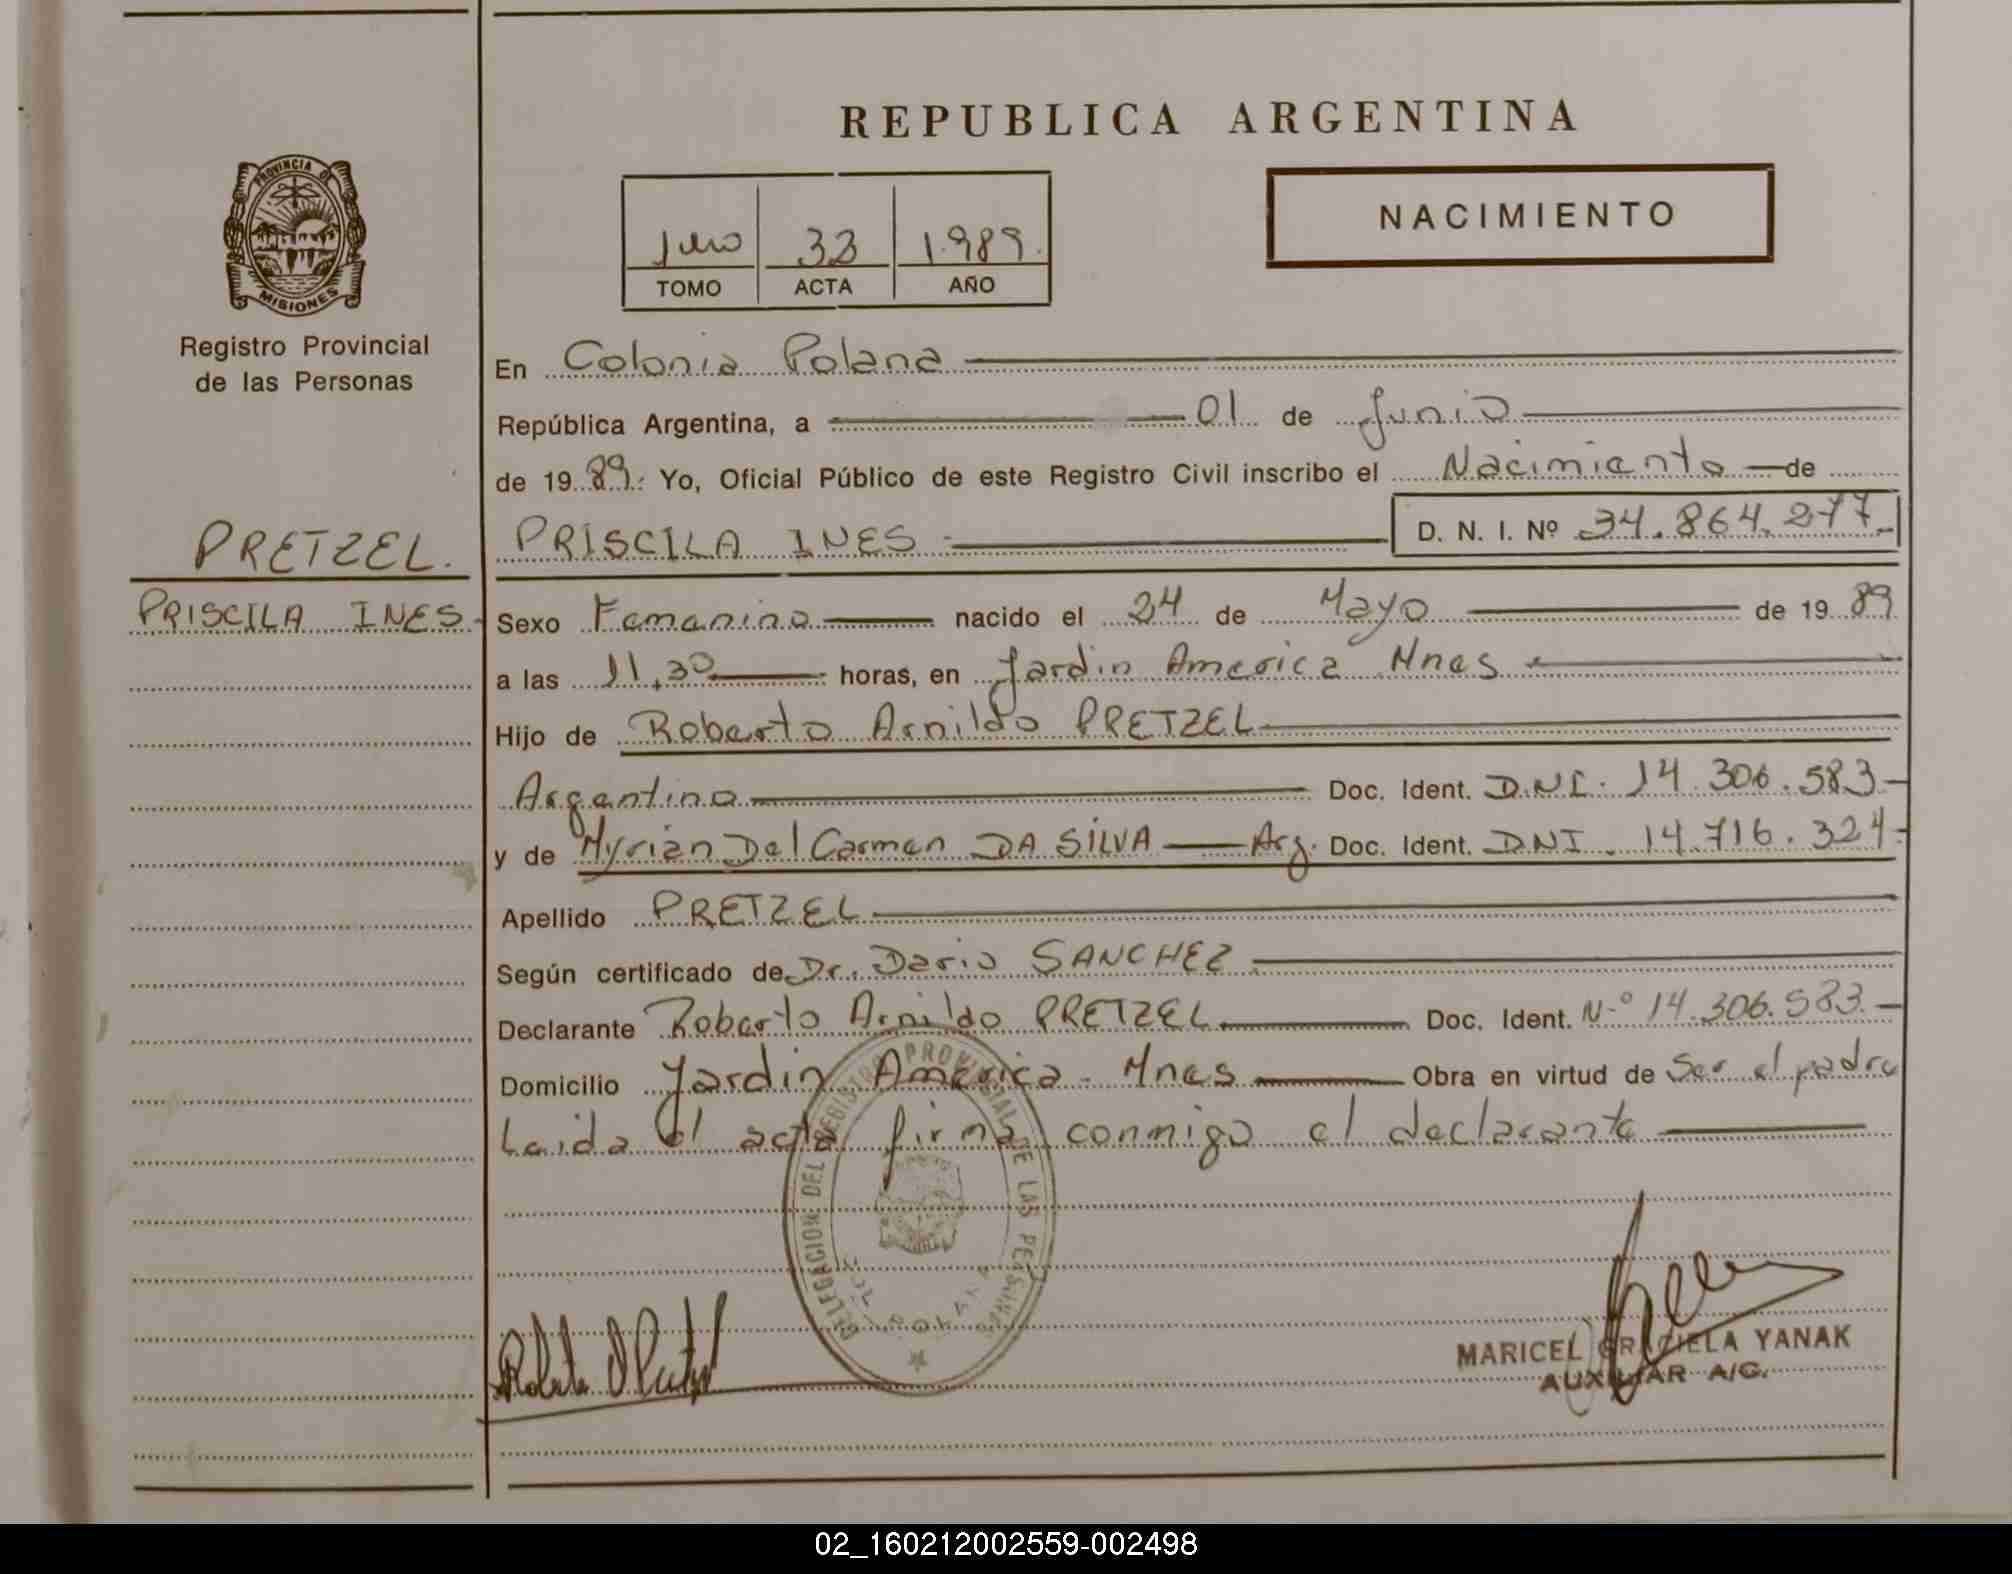 REPUBLICA ARGENTINA
PROVINCIA DE
MISIONES
Registro Provincial
de las Personas
NACIMIENTO
33 1.989.
TOMO ACTA AÑO
En Colonia Polana
República Argentina, a 01 de Junio
de 1989. Yo, Oficial Público de este Registro Civil inscribo el Nacimiento de
PRETZEL.
PRISCILA INES
PRISCILA INES D. N. I. Nº 34.864.277.
Sexo Femenino nacido el 24 de Mayo de 1989
a las 11,30 horas, en Jardin America Mnes
Hijo de Roberto Arnildo PRETZEL
Argentino Doc. Ident. D.N.I. 14.306.583
y de Myrian Del Carmen DA SILVA Arg. Doc. Ident. DNI. 14.716.324
Apellido PRETZEL
Según certificado de Dr. Dario SANCHEZ
Declarante Roberto Arnildo PRETZEL Doc. Ident. Nº 14.306.583.
Domicilio Jardin America. Mnes Obra en virtud de Ser el padre
Leida el acta firma conmigo el declarante
DELEGACION DEL REGISTRO PROVINCIAL DE LAS PERSONAS
POLANA
MARICEL GRACIELA YANAK
AUXILIAR A/C.
02_160212002559-002498